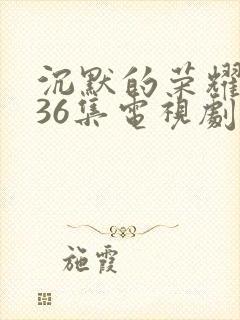 沉默的荣耀
36集電視劇
施霞